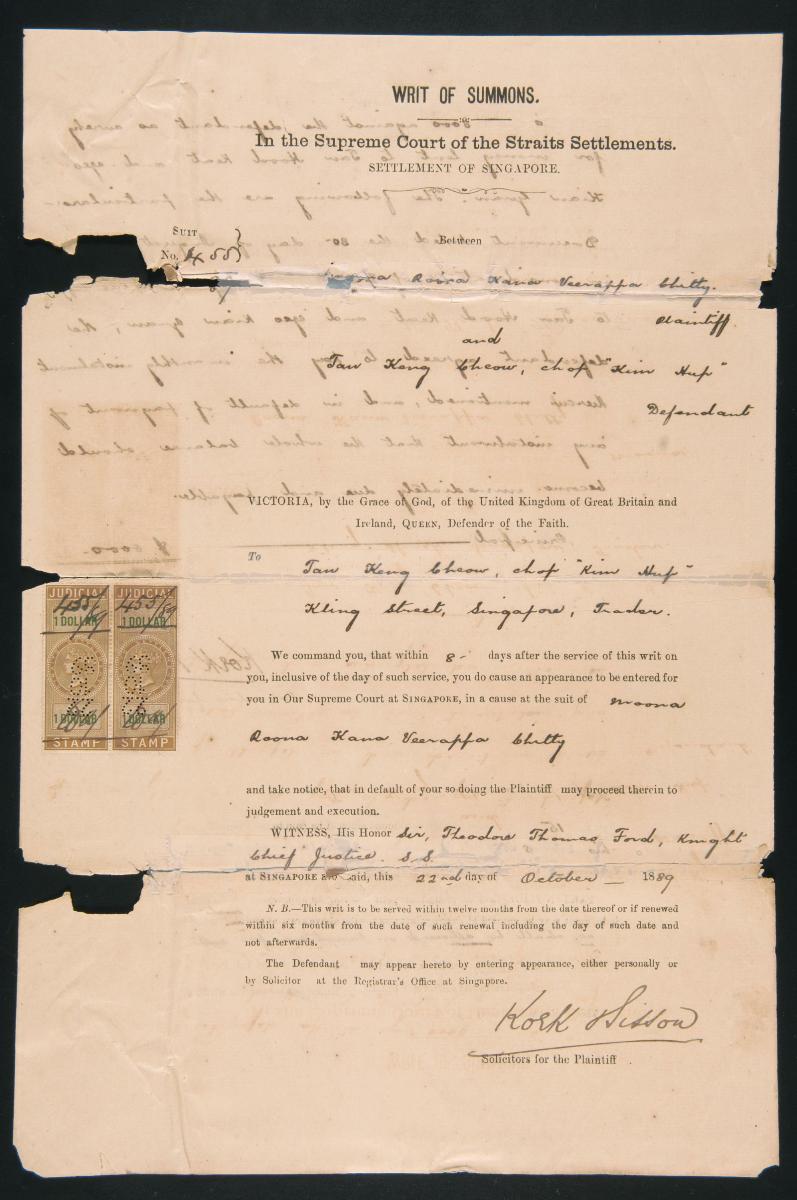 WRIT OF SUMMONS.
In the Supreme Court of the Straits Settlements.
SETTLEMENT OF SINGAPORE.
SUIT
No. 455
Between
Moona Roona Kana Veerappa Chitty.
Plaintiff.
and
Tan Keng Cheow, chop "Kim Hup"
Defendant
VICTORIA, by the Grace of God, of the United Kingdom of Great Britain and
Ireland, QUEEN, Defender of the Faith.
To
Tan Keng Cheow, chop "Kim Hup"
Kling Street, Singapore, Trader.
JUDICIAL JUDICIAL
455/89 455/89
1 DOLLAR 1 DOLLAR
1 DOLLAR 1 DOLLAR
STAMP STAMP
We command you, that within 8 - days after the service of this writ on
you, inclusive of the day of such service, you do cause an appearance to be entered for
you in Our Supreme Court at SINGAPORE, in a cause at the suit of Moona
Roona Kana Veerappa Chitty
and take notice, that in default of your so doing the Plaintiff may proceed therein to
judgement and execution.
WITNESS, His Honor Sir, Theodore Thomas Ford, Knight
Chief Justice. S.S.
at SINGAPORE aforesaid, this 22nd day of October 1889
N. B.—This writ is to be served within twelve months from the date thereof or if renewed
within six months from the date of such renewal including the day of such date and
not afterwards.
The Defendant may appear hereto by entering appearance, either personally or
by Solicitor at the Registrar's Office at Singapore.
Solicitors for the Plaintiff .